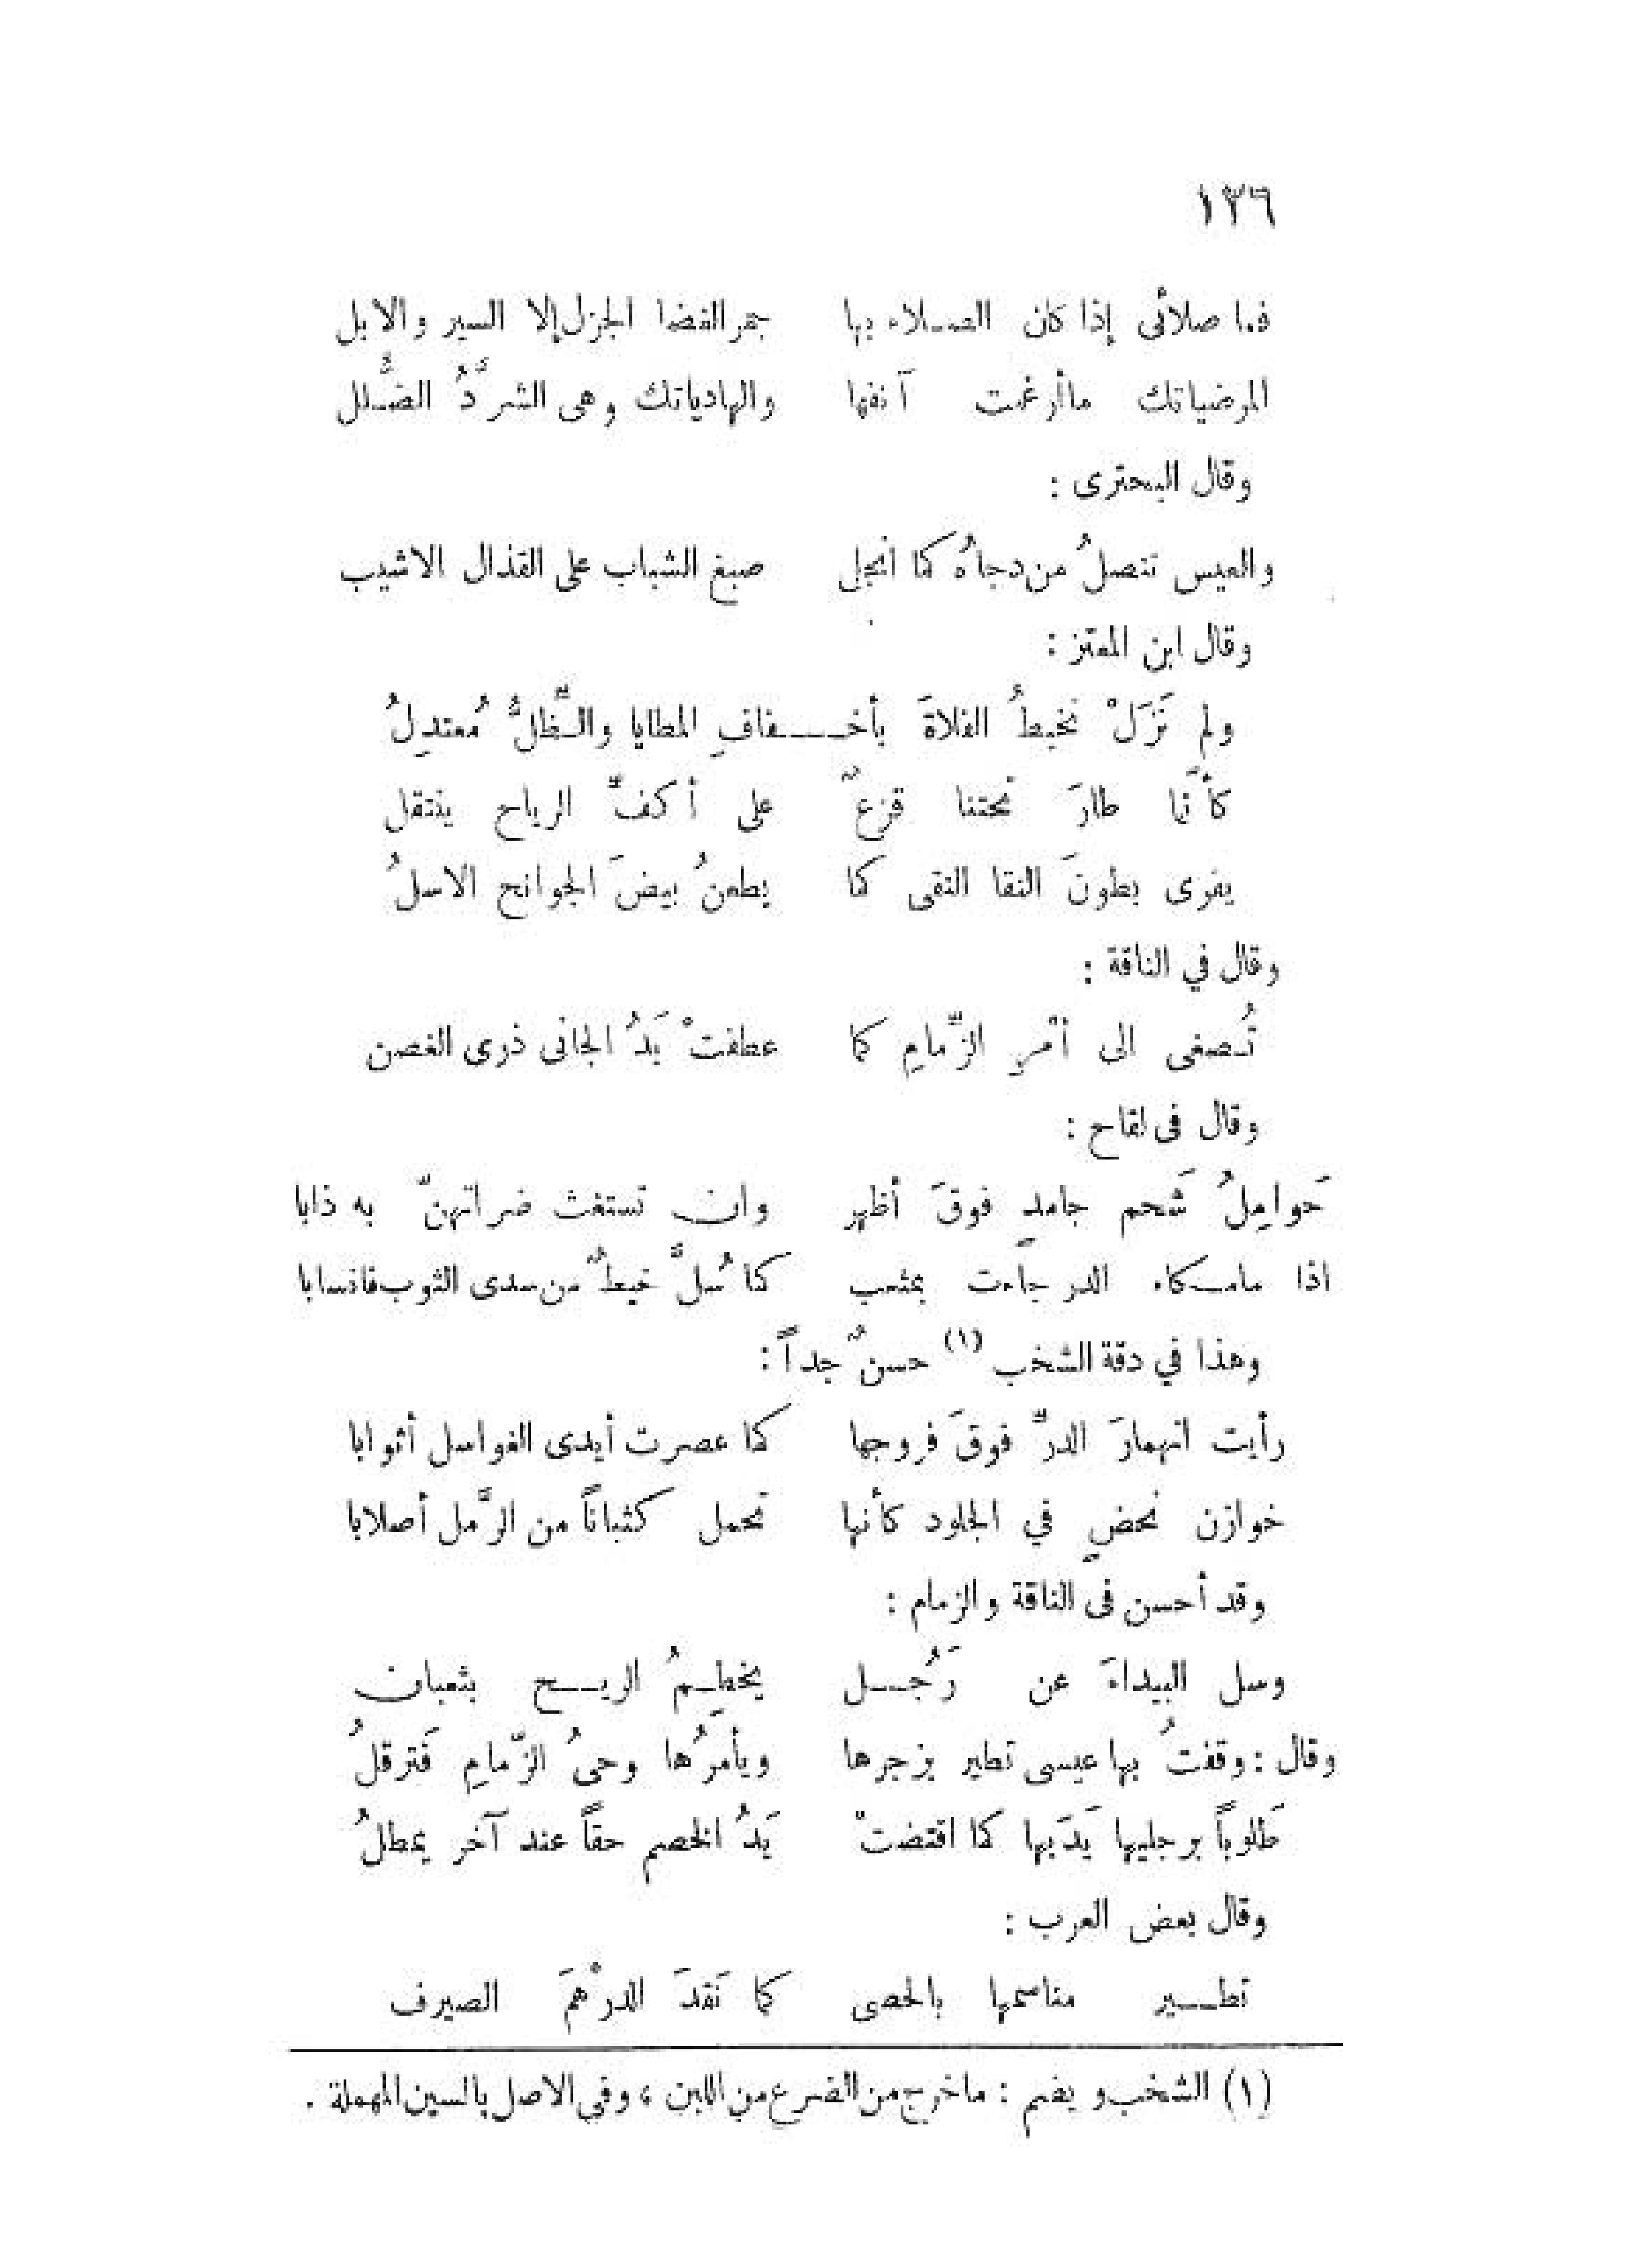 ١٢٦
فما صلائى إذا كان الصـلاء بها جمر الغضا الجزل إلا السير والابل
المرضياتك ماأرغمت آنفها والهادياتك وهى الشرَّدُ الضُّلل
وقال البحترى :
والعيس تنصلُ من دجاهُ كما انجلى صبغ الشباب على القذال الاشيب
وقال ابن المعتز :
ولم تَزَلْ تخبطُ الفلاةَ بأخــفافِ المطايا والـظِّلُّ مُعتدِلُ
كأنَّما طارَ تحتنا قزعٌ على أكفِّ الرياح ينتقل
يفرى بطونَ النقا النقى كما يطعنُ بيضَ الجوانح الاسلُ
وقال في الناقة :
تُـصغى الى أمْرِ الزِّمامِ كما عطفتْ يَدُ الجانى ذرى الغصن
وقال فى لقاح :
حَوامِلُ شَحم جامدٍ فوقَ أظهر وان تستغث ضراتهنّ به ذابا
اذا مامــكاء الدر جاءت بمثعب كما سُلَّ خيطٌ من سدى الثوب فانسابا
وهذا في دقة الشخب (١) حسنٌ جداً :
رأيت انهمارَ الدرِّ فوقَ فروجها كما عصرت أيدى الغواسل أثوابا
خوازن نحضٍ في الجلود كأنها تحمل كثباناً من الرَّمل أصلابا
وقد أحسن فى الناقة والزمام :
وسل البيداءَ عن رَجُــل يخطِــمُ الريــح بثعبان
وقال : وقفتُ بها عيسى تطير بزجرها ويأمرُها وحىُ الزِّمامِ فَترقلُ
طَلوباً برجليها يَدَيها كما اقتضتْ يَدُ الخصم حقاً عند آخر يمطلُ
وقال بعض العرب :
تطــير مناسمها بالحصى كما نَقدَ الدرْهَمَ الصيرف
(١) الشخب و يضم : ماخرج من الضرع من اللبن ، وفي الاصل بالسين المهملة .